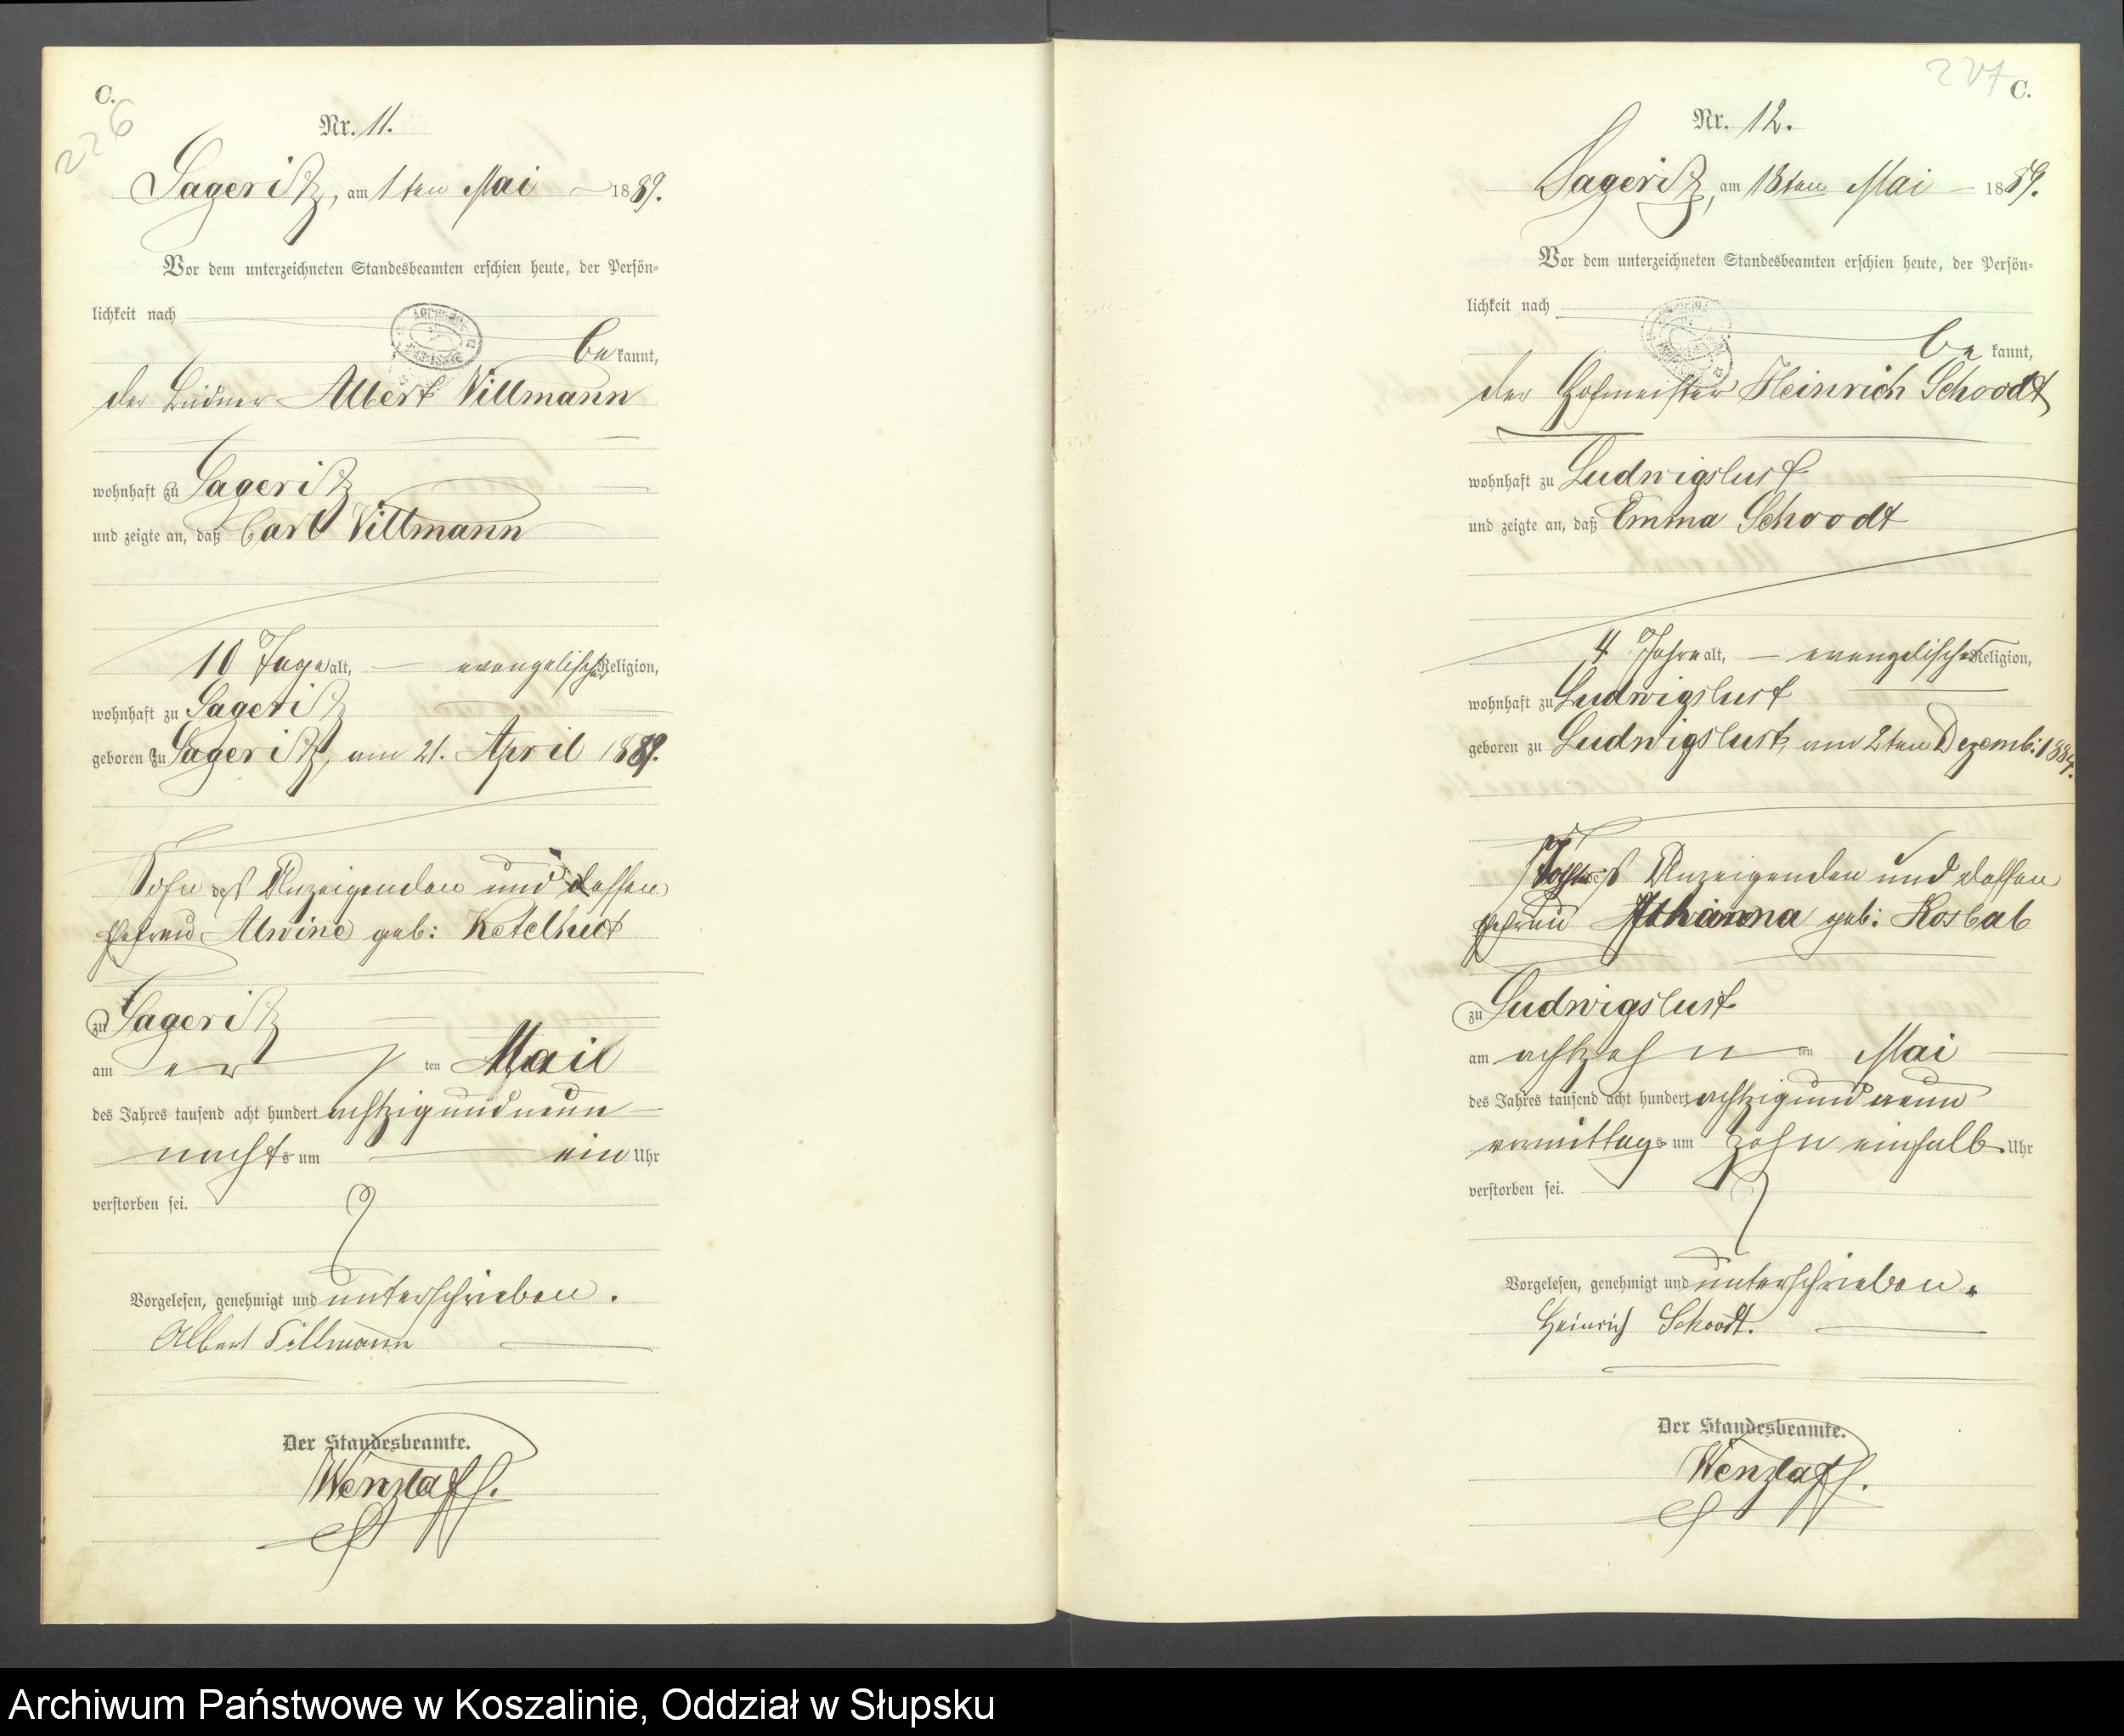 C.
226
Nr. 11.
Sageritz, am 1ten Mai 1889.
Vor dem unterzeichneten Standesbeamten erschien heute, der Persön-
lichkeit nach
bekannt,
der Büdner Albert Villmann
wohnhaft zu Sageritz
und zeigte an, daß Carl Villmann
10 Tage alt, evangelischer Religion,
wohnhaft zu Sageritz
geboren zu Sageritz, am 21. April 1889.
Sohn des Anzeigenden und dessen
Ehefrau Alwine geb: Ketelhut
zu Sageritz
am ersten Mai
des Jahres tausend acht hundert achtzig und neun
nachts um ein Uhr
verstorben sei.
Vorgelesen, genehmigt und unterschrieben.
Albert Villmann
Der Standesbeamte.
Wenzlaff.
227
C.
Nr. 12.
Sageritz, am 18ten Mai 1889.
Vor dem unterzeichneten Standesbeamten erschien heute, der Persön-
lichkeit nach
bekannt,
der Hofmeister Heinrich Schoodt
wohnhaft zu Ludwigslust
und zeigte an, daß Emma Schoodt
4 Jahre alt, evangelischer Religion,
wohnhaft zu Ludwigslust
geboren zu Ludwigslust, am 2ten Dezemb: 1884.
Tochter des Anzeigenden und dessen
Ehefrau Johanna geb: Kosbab
zu Ludwigslust
am achtzehnten Mai
des Jahres tausend acht hundert achtzig und neun
vormittags um zehn einhalb Uhr
verstorben sei.
Vorgelesen, genehmigt und unterschrieben.
Heinrich Schoodt.
Der Standesbeamte.
Wenzlaff.
Archiwum Państwowe w Koszalinie, Oddział w Słupsku